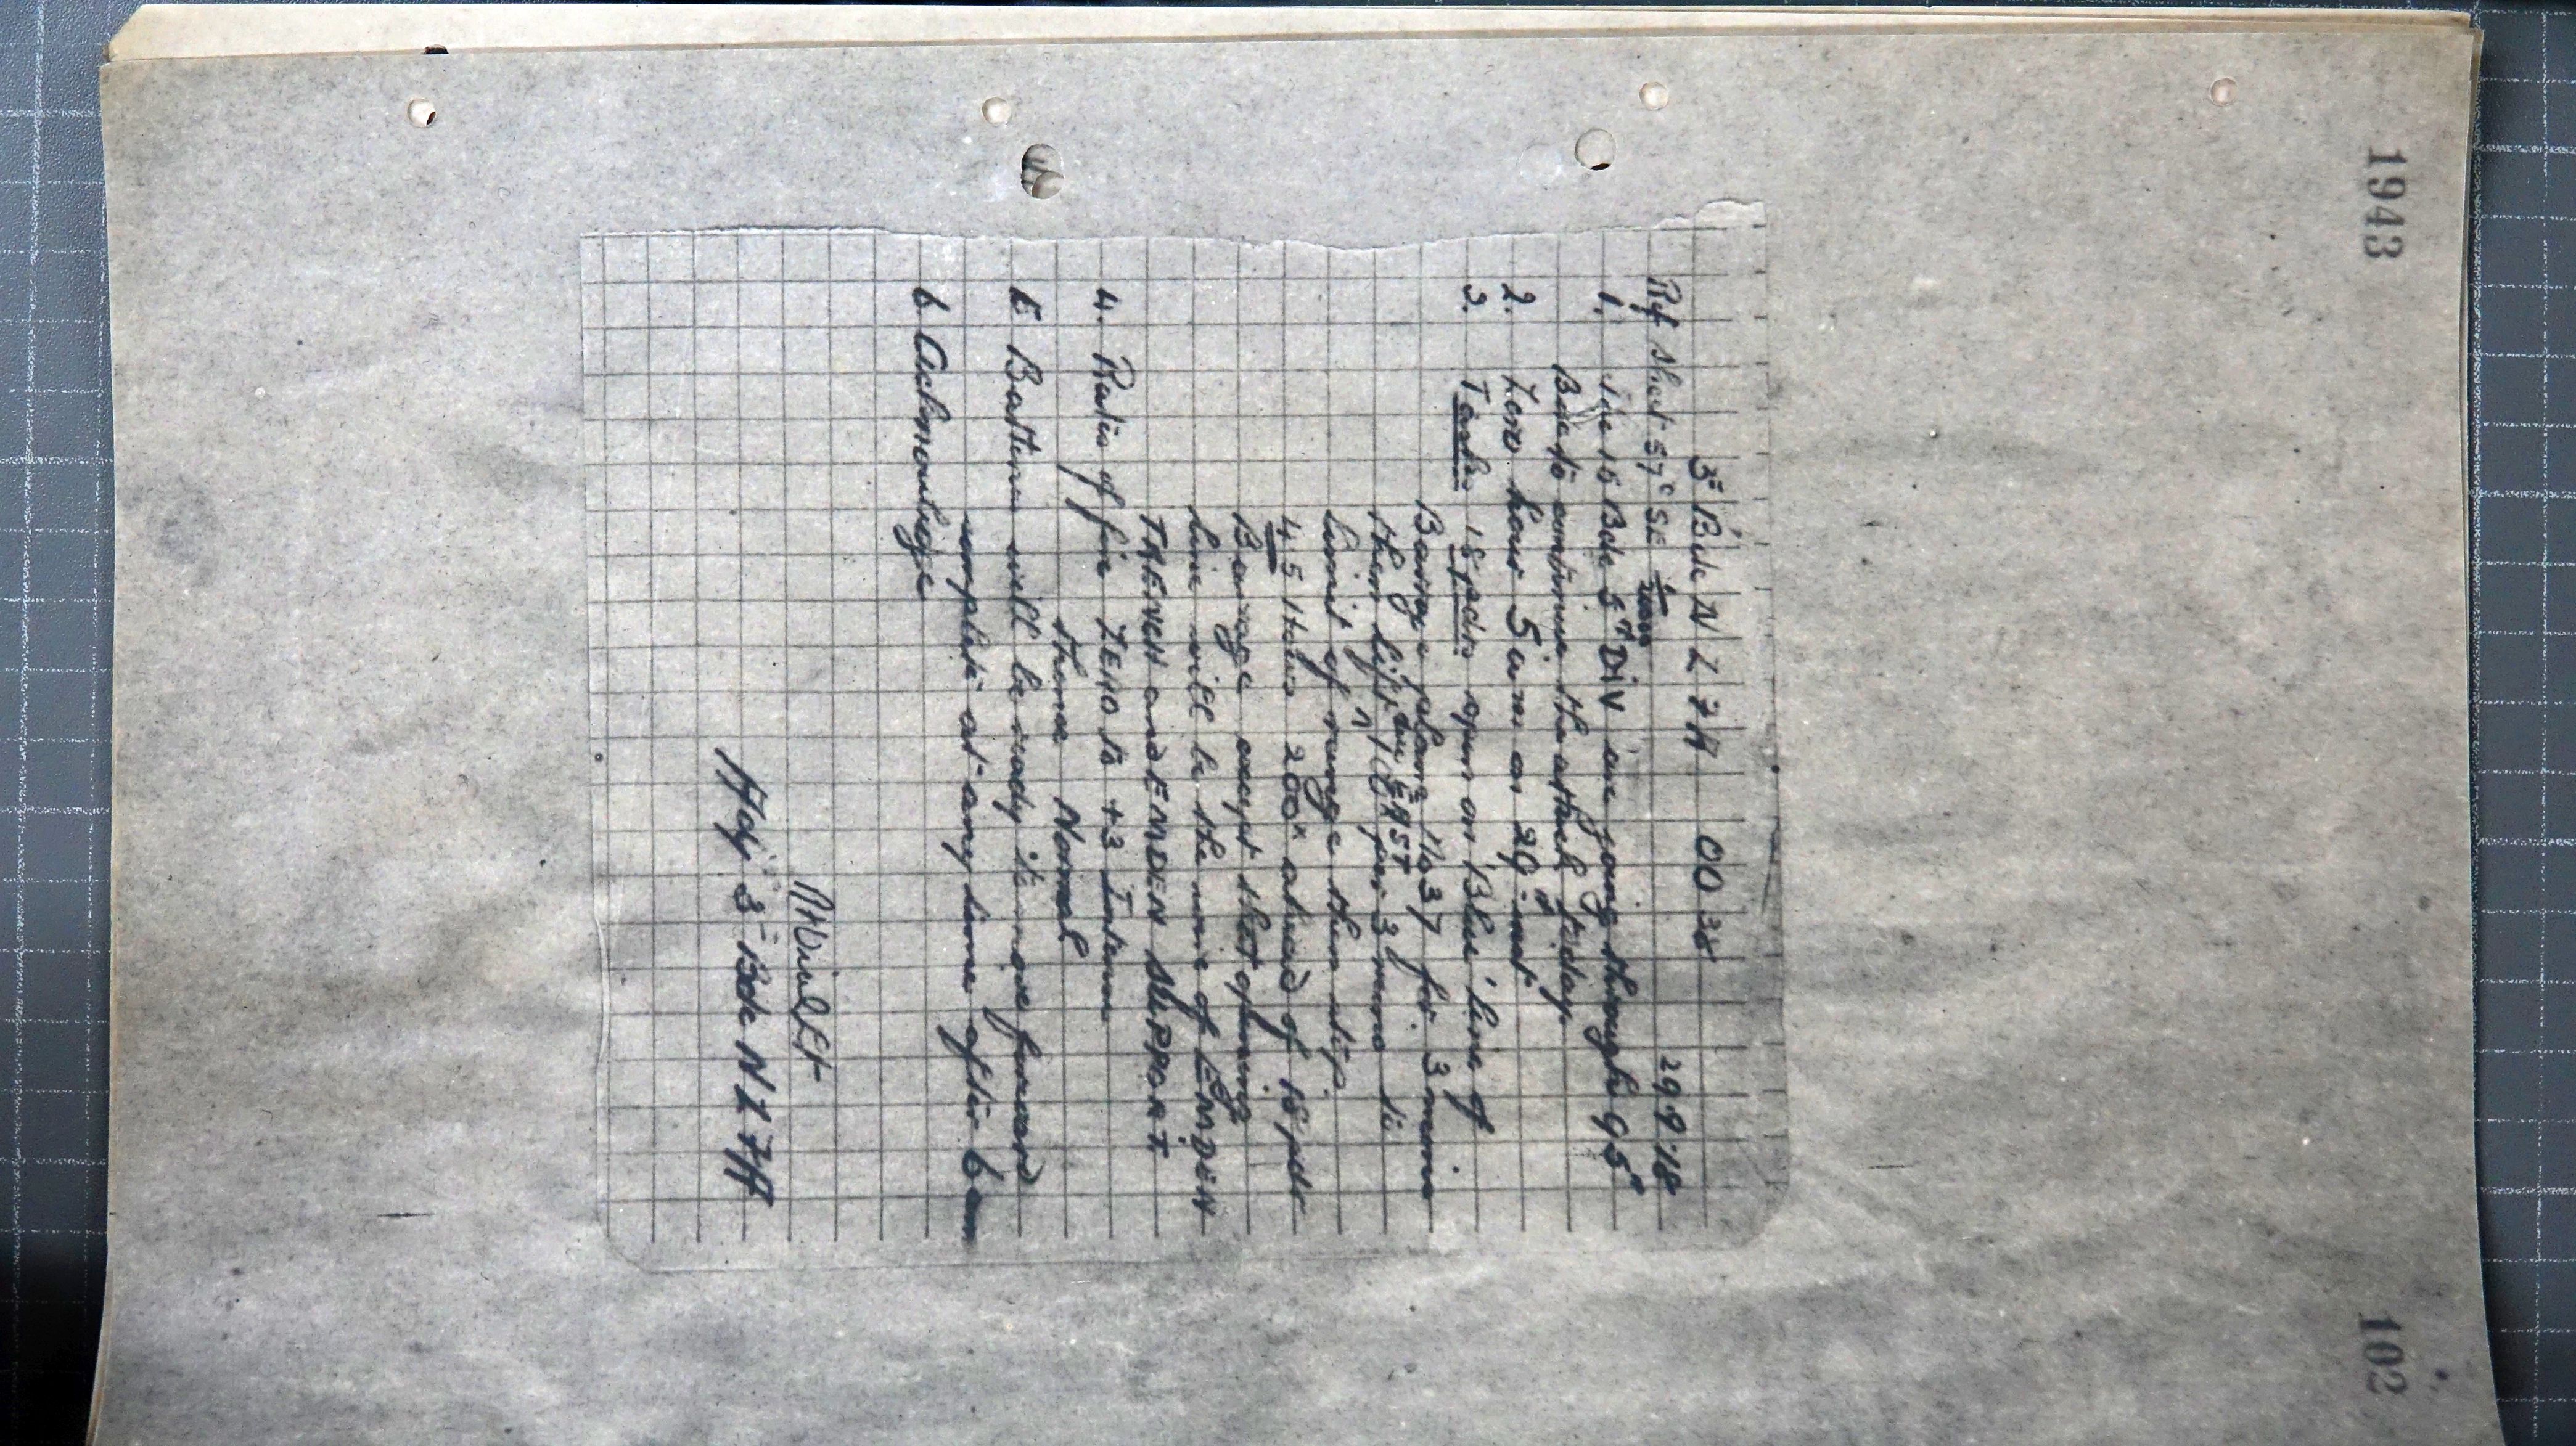 1943
102
3rd Bde N Z F A OO 38
Ref Sheet 57c SE 1/20000 29.9.18
1. The 15 Bde 5th DIV are going through 95th
Bde to continue the attack today
2. Zero hour 5 am on 29 inst
3. Tasks 18 pdrs open on 'Blue' line of
Barrage plan No 37 for 3 mins
then lift due EAST 100x per 3 mins to
limit of range then stop.
4.5 Hows 200x ahead of 18 pdr
Barrage except that opening
line will be the line of EMDEN
TRENCH and EMDEN SUPPORT
4. Ratio of fire ZERO to +3 Intense
thence Normal
5 Batteries will be ready to move forward
complete at any time after 6 am
6 Acknowledge
Lt
Adjt 3rd Bde N Z F A